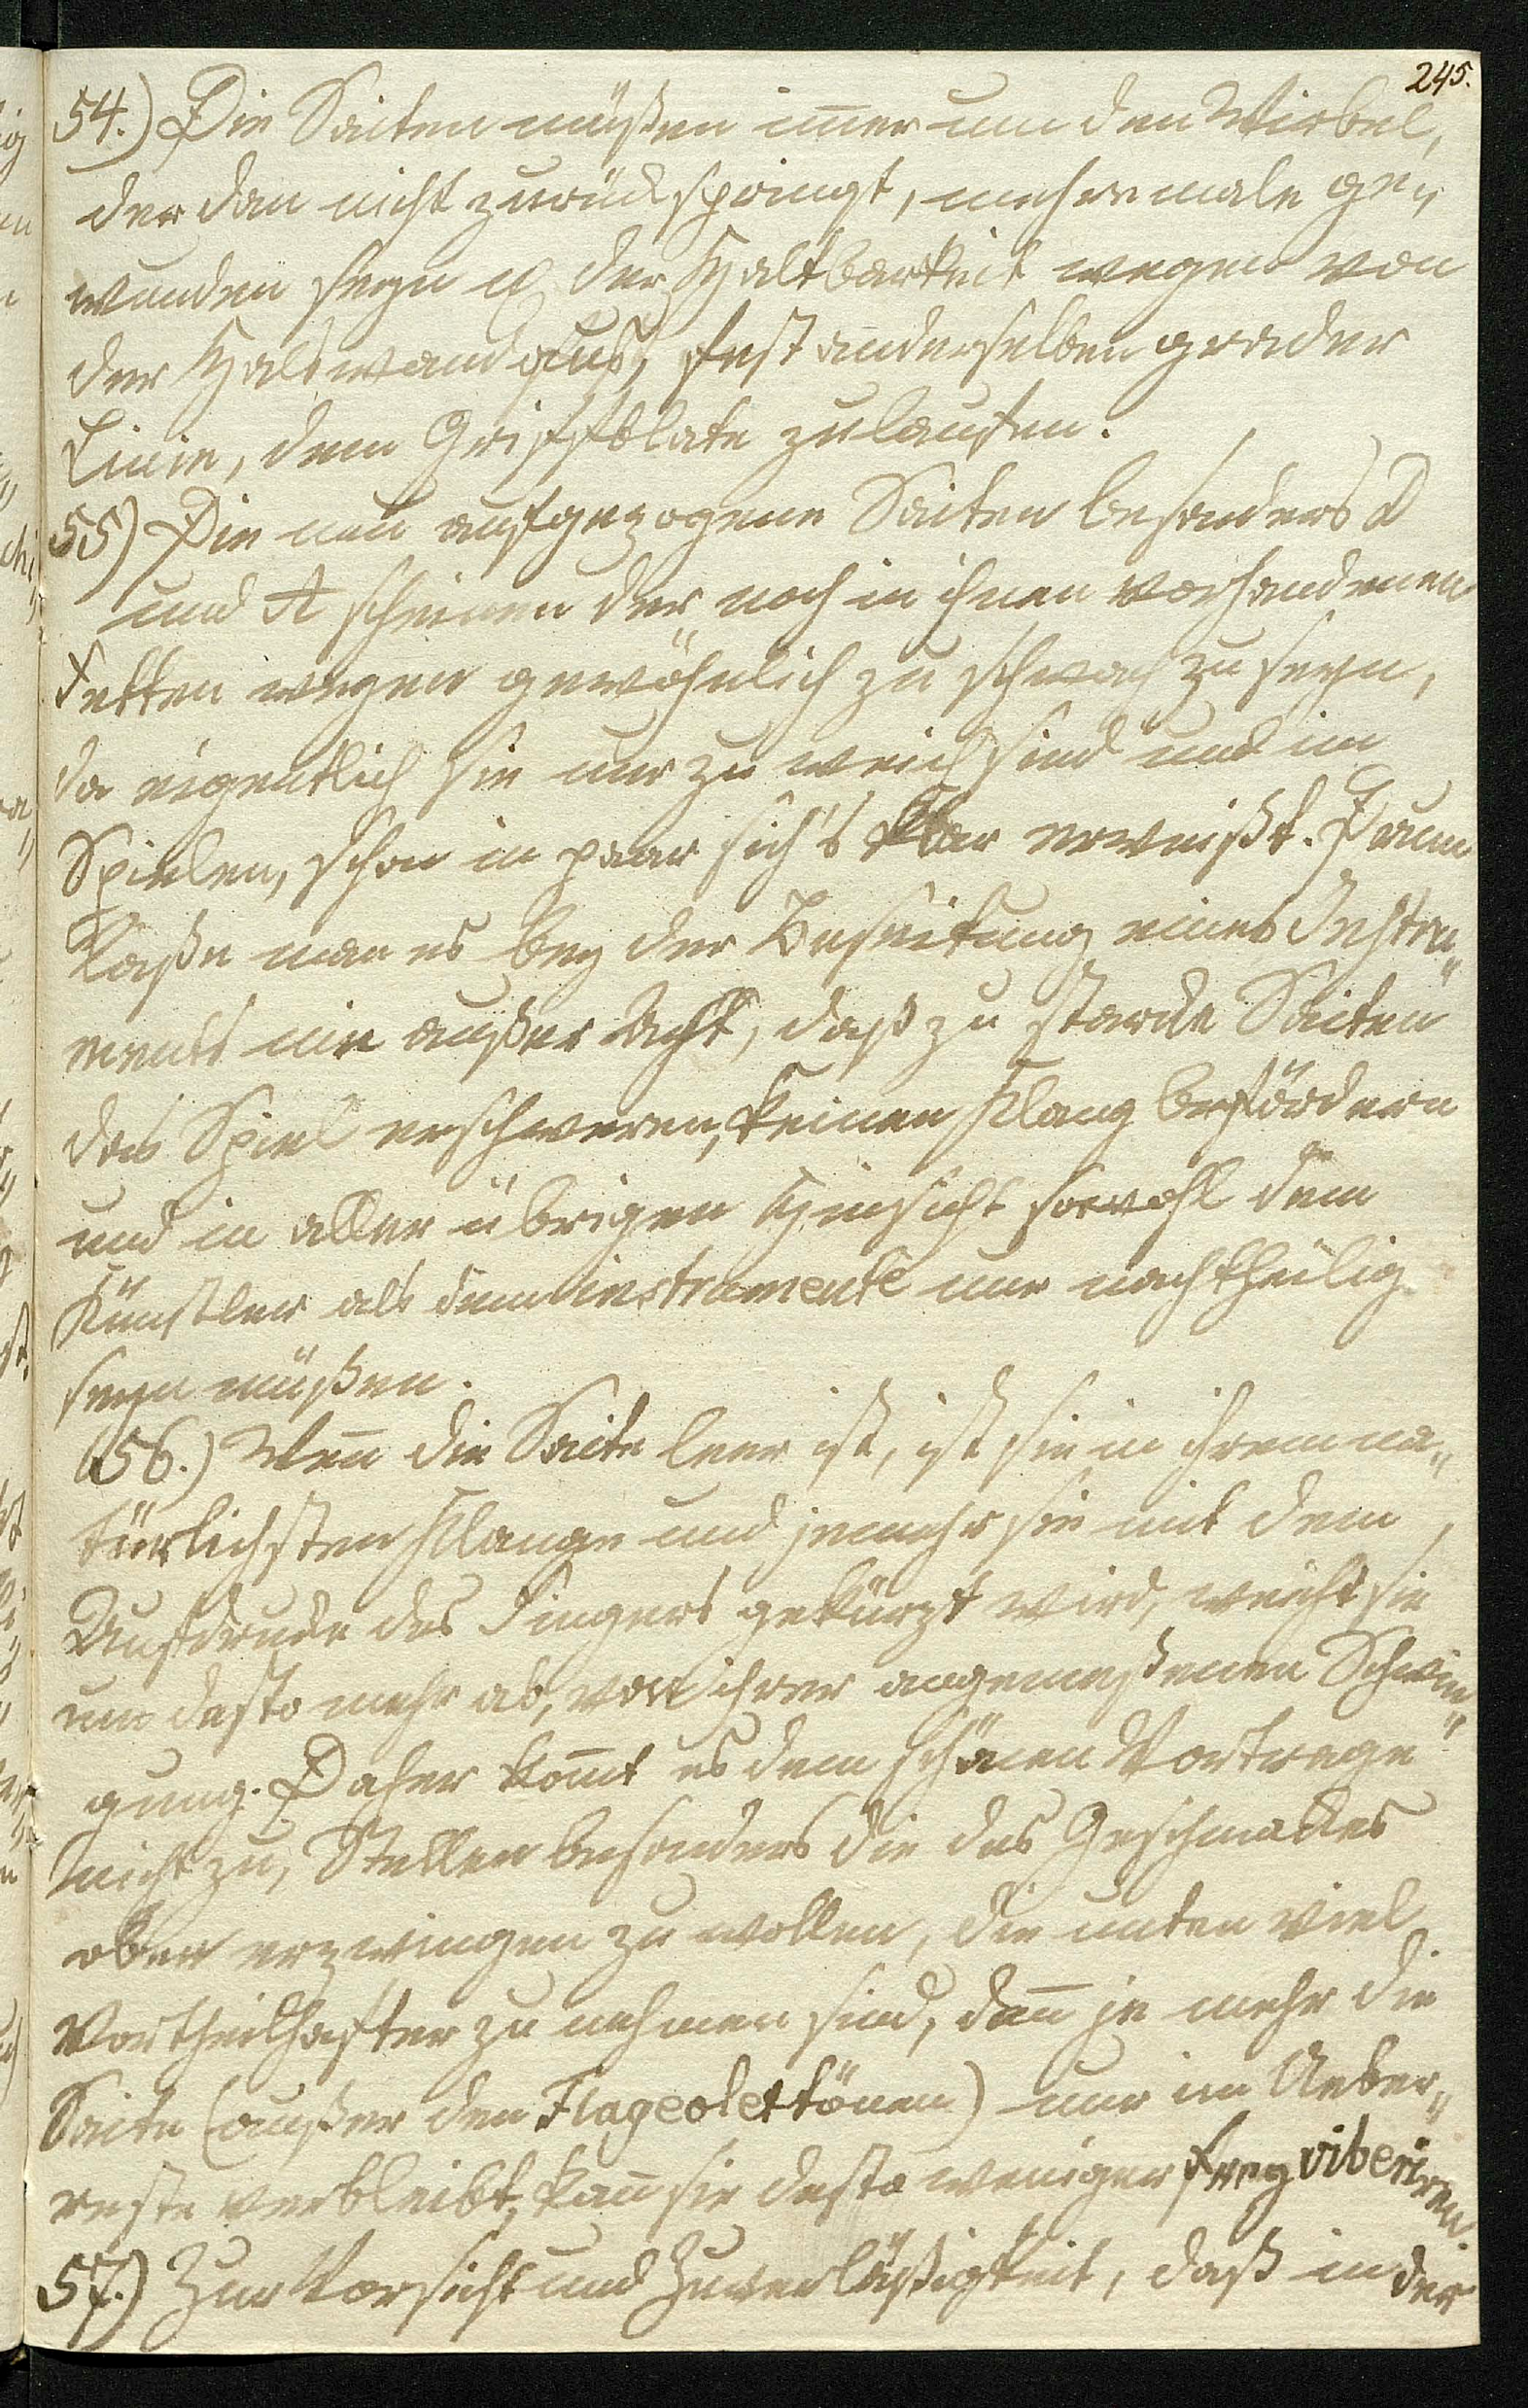 245.
54.) Die Saiten müßen im̄er um den Wirbel,
der dan nicht zurückspringt, mehremale ge„
wunden seyn u der Haltbarkeit wegen von
der Halswand aus, fest an derselben grader
Linie, dem Griffblate zulaufen.
55) Die neu aufgezogene Saiten besonders D
und A scheinen der noch in ihnen vorhandenen
Fetten wegen gewöhnlich zu schwach zu seyn,
da eigentlich sie nur zu weich sind und im
Spielen, schon in paar sich's klar erweißt. Drum
laße man es bey der Besaitung eines Instru„
ments nie außer Acht, daß zu starcke Saiten
das Spiel erschweren, keinen Klang befördern
und in aller übrigen Hinsicht sowohl dem
Künstler als dem instrumente nur nachtheilig
seyn müßen.
56.) Wen̄ die Saite leer ist, ist sie in ihrem na„
türlichsten Klange und jemehr sie mit dem
Aufdrucke des Fingers gekürzt wird, weicht sie
um desto mehr ab, von ihrer angemeßenen Schwin„
gung. Daher kom̄t es dem schönen Vortrage
nicht zu, Stellen besonders die des Geschmackes
oben erzwingen zu wollen, die unten viel
vortheilhafter zu nehmen sind, den̄ je mehr die
Saite (außer den Flageolettönen) nur im Ueber„
reste verbleibt, kan̄ sie desto weniger frey vibriren.
57.) Zur Vorsicht und Zuverläßigkeit, daß in der